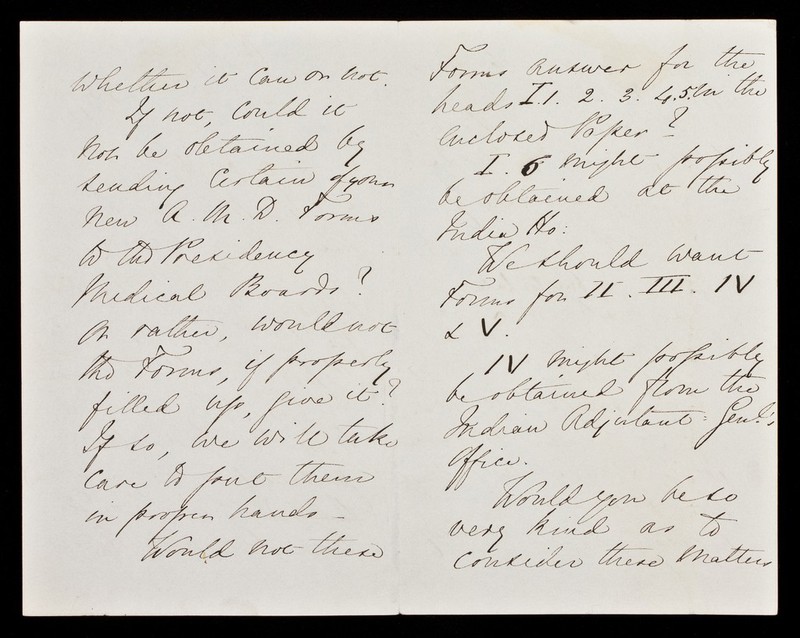 whether it can or not.
If not, could it
not be obtained by
sending certain of your
new A. M. D. Forms
to the Presidency
Medical Boards?
or rather, would not
the Forms, if properly
filled up, give it?
If so, we will take
care to put them
in proper hands -
Would not these
Forms answer for the
heads I. 1. 2. 3. 4. 5. in the
enclosed Paper - ?
I. 6 might possibly
be obtained at the
India Ho:
We should want
Forms for II. III. IV
& V.
IV might possibly
be obtained from the
Indian Adjutant-Genl's
Office.
Would you be so
very kind as to
consider these matters